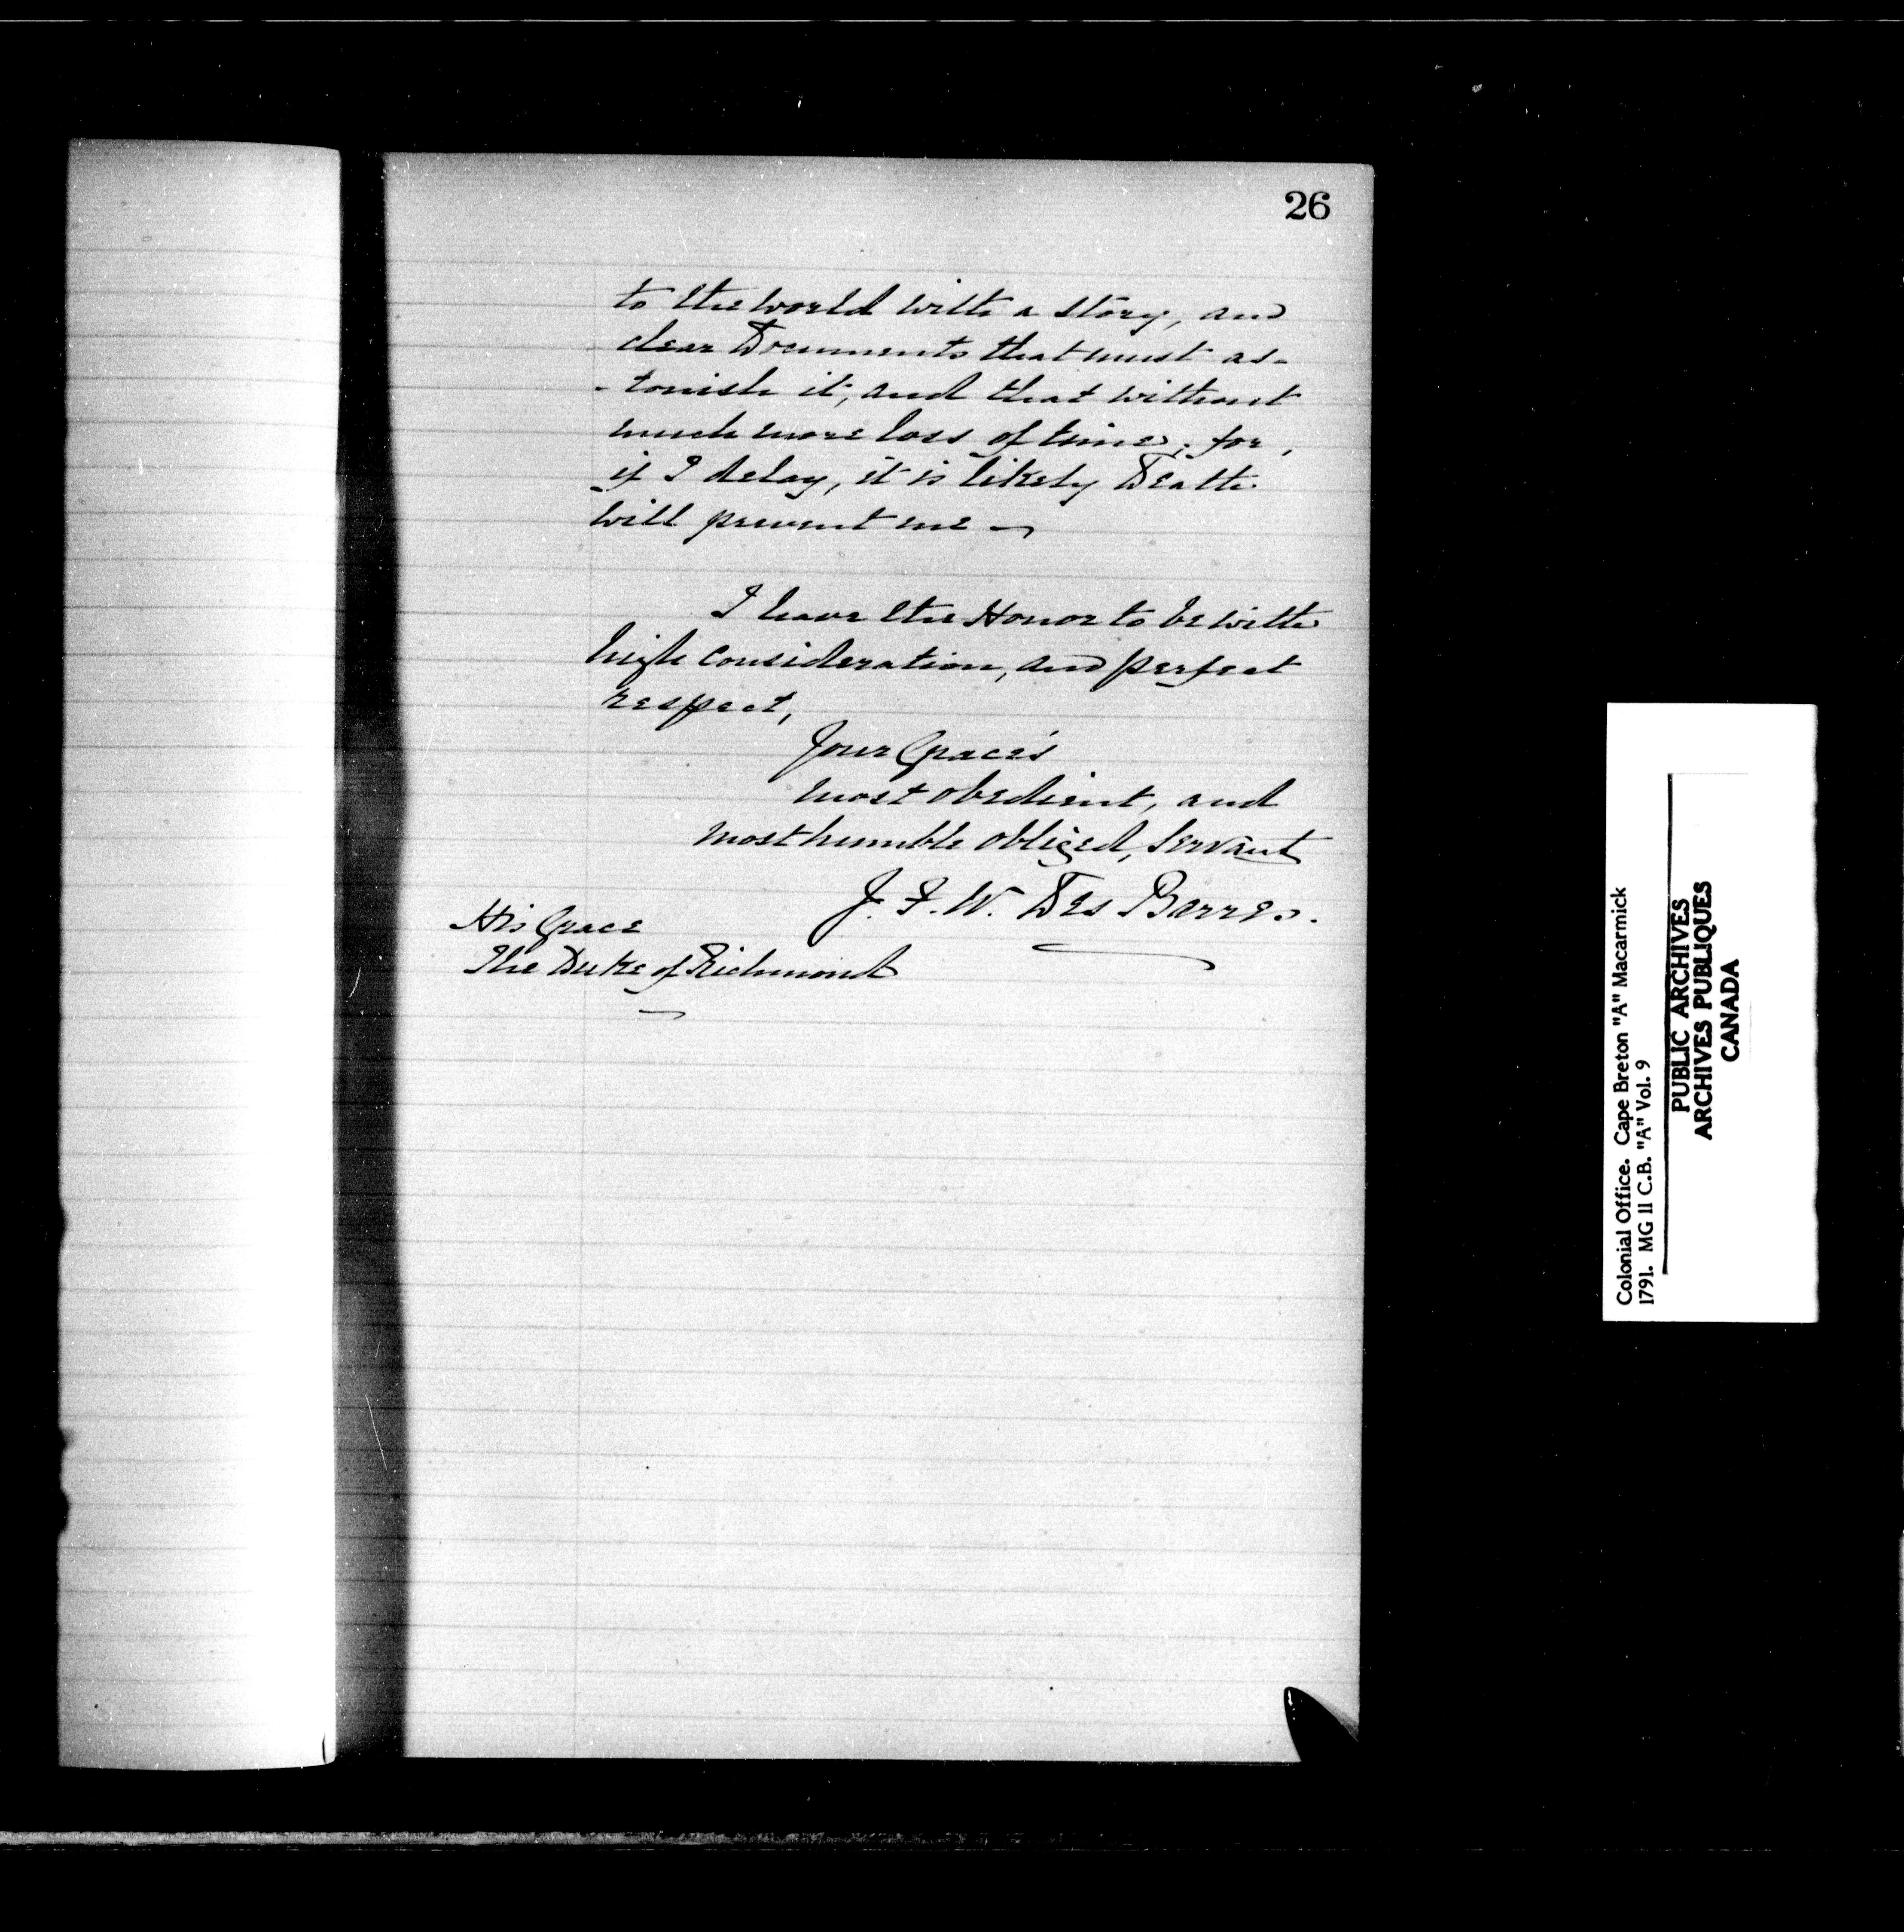 26
to the world with a story, and
clear Documents that must as-
-tonish it, and that without
much more loss of time; for,
if I delay, it is likely Death
will prevent me —
I have the Honor to be with
high consideration, and perfect
respect,
Your Grace's
most obedient, and
most humble obliged, Servant
J. F. W. Des Barres.
His Grace
The Duke of Richmond
Colonial Office. Cape Breton "A" Macarmick
1791. MG 11 C.B. "A" Vol. 9
PUBLIC ARCHIVES
ARCHIVES PUBLIQUES
CANADA